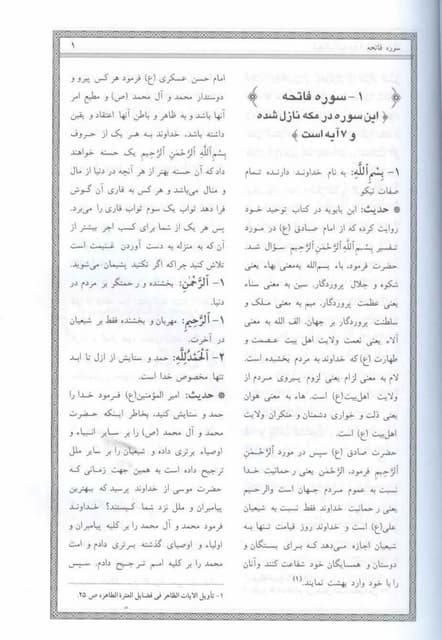 سوره فاتحه
۱
۱- سوره فاتحه
﴿ این سوره در مکه نازل شده
و ۷ آیه است ﴾
۱- بِسْمِ اللَّهِ: به نام خداوند دارنده تمام
صفات نیکو
* حدیث: ابن بابویه در کتاب توحید خود
روایت کرده که از امام صادق (ع) در مورد
تفسیر بِسْمِ اللَّهِ الرَّحْمٰنِ الرَّحِيمِ سؤال شد.
حضرت فرمود، باء بسم‌الله به‌معنی بهاء یعنی
شکوه و جلال پروردگار. سین به معنی سناء
یعنی عظمت پروردگار. میم به معنی ملک و
سلطنت پروردگار بر جهان. الف الله به معنی
آلاء یعنی نعمت ولایت اهل بیت عصمت و
طهارت (ع) که خداوند به مردم بخشیده است.
لام به معنی الزام یعنی لزوم پیروی مردم از
ولایت اهل‌بیت(ع) است. هاء به معنی هوان
یعنی ذلت و خواری دشمنان و منکران ولایت
اهل‌بیت(ع) است.
حضرت صادق (ع) سپس در مورد الرَّحْمٰنِ
الرَّحِيمِ فرمود، الرحمن یعنی رحمانیت خدا
نسبت به عموم مردم جهان است والرحیم
یعنی رحمانیت خداوند فقط نسبت به شیعیان
علی(ع) است و خداوند روز قیامت تنها به
شیعیان اجازه می‌دهد که برای بستگان و
دوستان و همسایگان خود شفاعت کنند وآنان
را با خود وارد بهشت نمایند.(۱)
امام حسن عسکری (ع) فرمود هر کس پیرو و
دوستدار محمد و آل محمد (ص) و مطیع امر
آنها باشد و به ظاهر و باطن آنها اعتقاد و یقین
داشته باشد، خداوند به هر یک از حروف
بِسْمِ اللَّهِ الرَّحْمٰنِ الرَّحِيمِ یک حسنه خواهند
داد که آن حسنه بهتر از هر آنچه در دنیا از مال
و منال می‌باشد و هر کس به قاری آن گوش
فرا دهد ثواب یک سوم ثواب قاری را می‌برد.
پس هر یک از شما برای کسب اجر بیشتر از
آن که به منزله به دست آوردن غنیمت است
تلاش کنید چراکه اگر نکنید پشیمان می‌شوید.
۱- الرَّحْمٰنِ: بخشنده و رحمتگر بر مردم در
دنیا.
۱- الرَّحِيمِ: مهربان و بخشنده فقط بر شیعیان
در آخرت.
۲- الْحَمْدُ لِلَّهِ: حمد و ستایش از ازل تا ابد
تنها مخصوص خدا است.
* حدیث: امیر المؤمنین(ع) فرمود خدا را
حمد و ستایش کنید، بخاطر اینکه حضرت
محمد و آل محمد (ص) را بر سایر انبیاء و
اوصیاء برتری داده و شیعیان را بر سایر ملل
ترجیح داده است به همین جهت زمانی که
حضرت موسی از خداوند پرسید که بهترین
پیامبران و ملل نزد شما کیستند؟ خداوند
فرمود محمد و آل محمد را بر کلیه پیامبران و
اولیاء و اوصیای گذشته برتری دادم و امت
محمد را بر کلیه امم ترجیح دادم. سپس
۱- تأویل الایات الظاهر فی فضایل العترة الطاهره ص ۲۵.